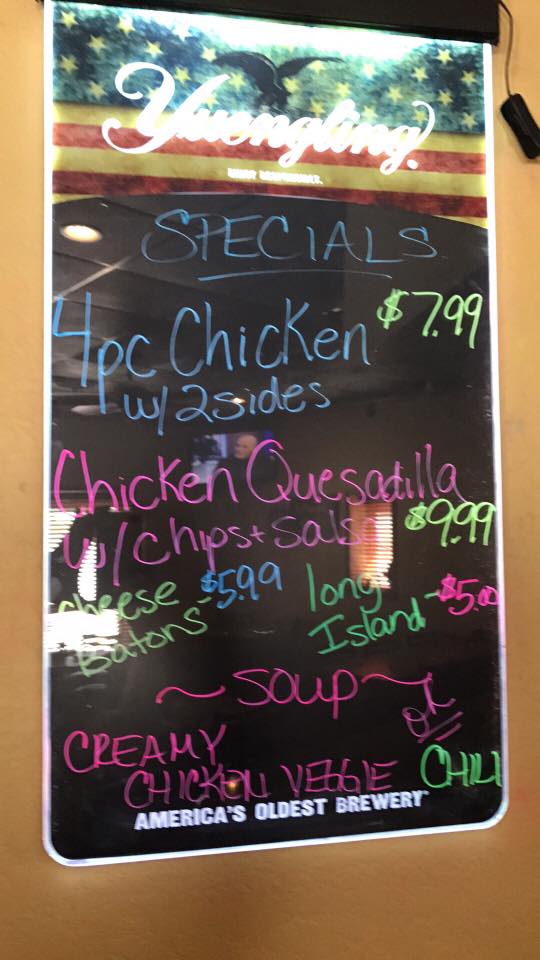 Yuengling
SPECIALS
4pc Chicken $7.99
w/ 2sides
Chicken Quesadilla
w/ chips + Salsa $9.99
cheese Batons - $5.99
long Island - $5.00
~ Soup ~
CREAMY or
CHICKEN VEGGIE CHILI
AMERICA'S OLDEST BREWERY